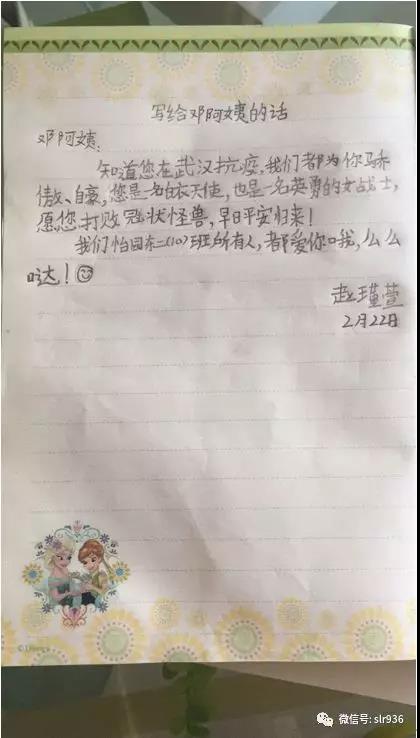 写给邓阿姨的话
邓阿姨:
知道您在武汉抗疫,我们都为你骄
傲、自豪,您是一名白衣天使,也是一名英勇的女战士,
愿您打败冠状怪兽,早日平安归来!
我们怡园东二(10)班所有人,都爱你哦,么么
哒!
赵瑾萱
2月22日
©Disney
微信号: slr936